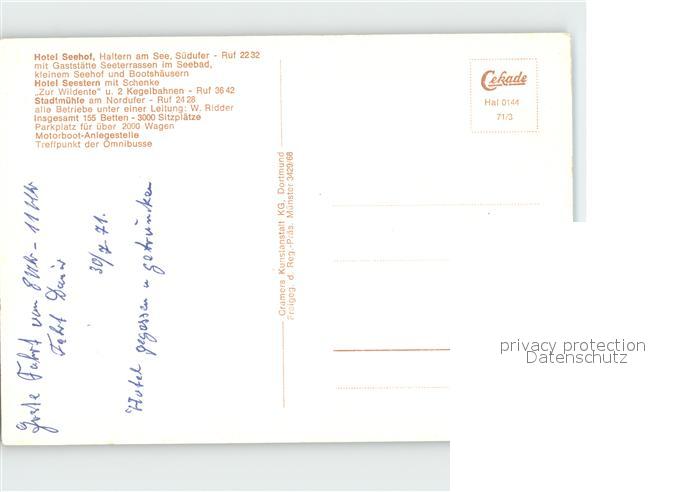 Hotel Seehof, Haltern am See, Südufer - Ruf 2232
mit Gaststätte Seeterrassen im Seebad,
kleinem Seehof und Bootshäusern
Hotel Seestern mit Schenke
„Zur Wildente" u. 2 Kegelbahnen - Ruf 3642
Stadtmühle am Nordufer - Ruf 2428
alle Betriebe unter einer Leitung: W. Ridder
Insgesamt 155 Betten - 3000 Sitzplätze
Parkplatz für über 2000 Wagen
Motorboot-Anlegestelle
Treffpunkt der Omnibusse
Fahrt von 8 Uhr - 11 Uhr
Fahrt
30/7. 71.
Hotel gegessen u getrunken
Cramers Kunstanstalt KG, Dortmund
Freigeg. d. Reg.-Präs. Münster 3429/68
Cekade
Hal 0144
71/3
privacy protection
Datenschutz